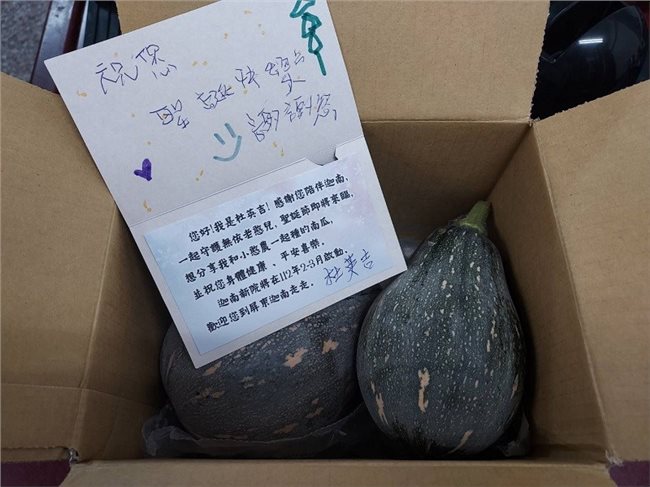 祝您
聖誕快樂
謝謝您
您好！我是杜英吉！感謝您陪伴迦南，
一起守護無依老憨兒，聖誕節即將來臨，
想分享我和小憨農一起種的南瓜，
並祝您身體健康、平安喜樂。
迦南新院將在112年2-3月啟動，
歡迎您到屏東迦南走走。
杜英吉